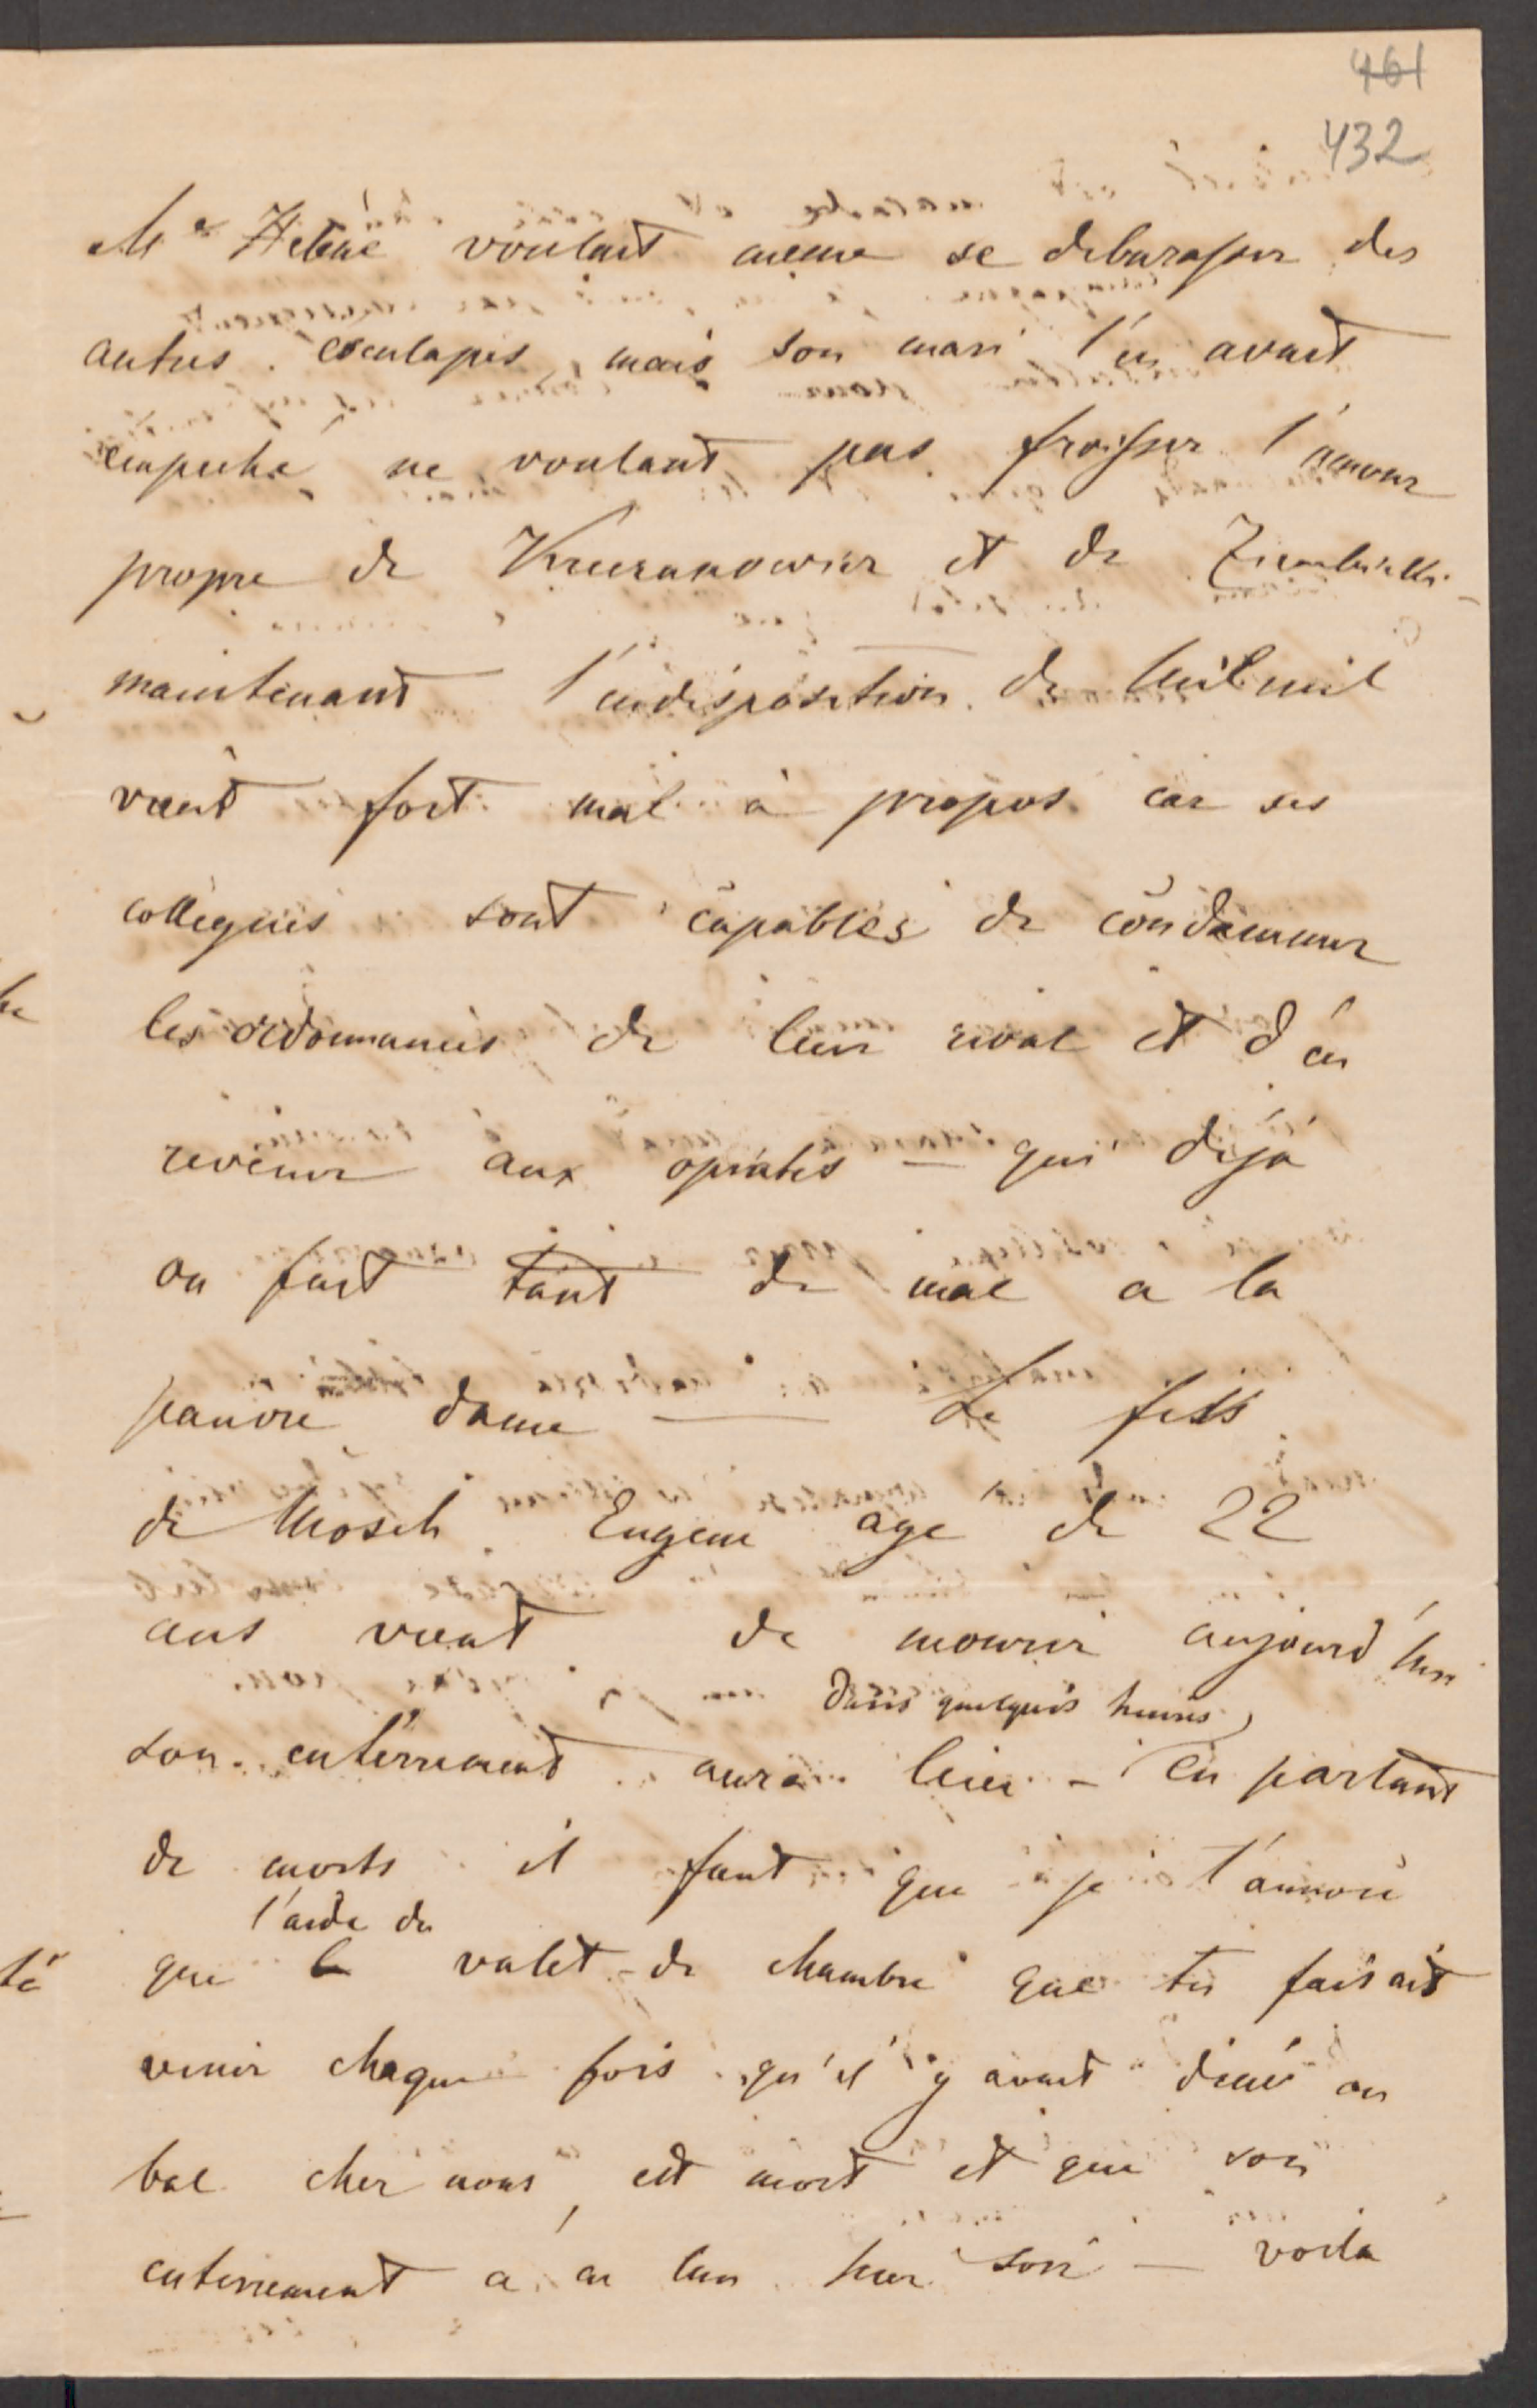 461
432
Me Helene voulait meme se debarasser des
autres esculapes, mais son mari l'en avait
empeché ne voulant pas froisser l'amour
propre de et de
maintenant l'indisposition de
vient fort mal à propos car ses
collegues sont capables de condamner
les ordonnances de leur rival et d'en
revenir aux opiates — qui déjà
on fait tant de mal a la
pauvre dame — Le fils
de Mosch Eugene agé de 22
ans vient de mourir aujourd'hui
dans quelques heures
son enterrement aura lieu - en parlant
de morts il faut que je t'annonce
l'aide du
que le valet-de chambre que tu faisait
venir chaque fois qu'il y avait diné ou
bal chez nous, est mort et que son
enterrement a eu lieu hier soir — voila
té